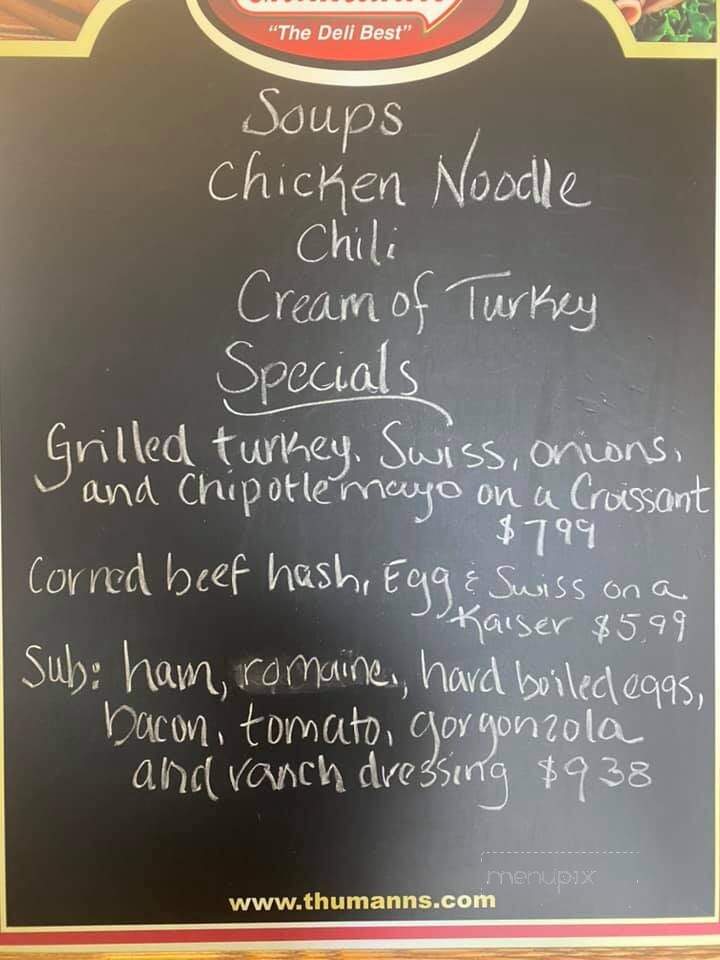 "The Deli Best"
Soups
Chicken Noodle
Chili
Cream of Turkey
Specials
Grilled turkey, Swiss, onions,
and Chipotle mayo on a Croissant
$799
Corned beef hash, Egg & Swiss on a
Kaiser $5.99
Sub: ham, romaine, hard boiled eggs,
bacon, tomato, gorgonzola
and ranch dressing $938
menupix
www.thumanns.com